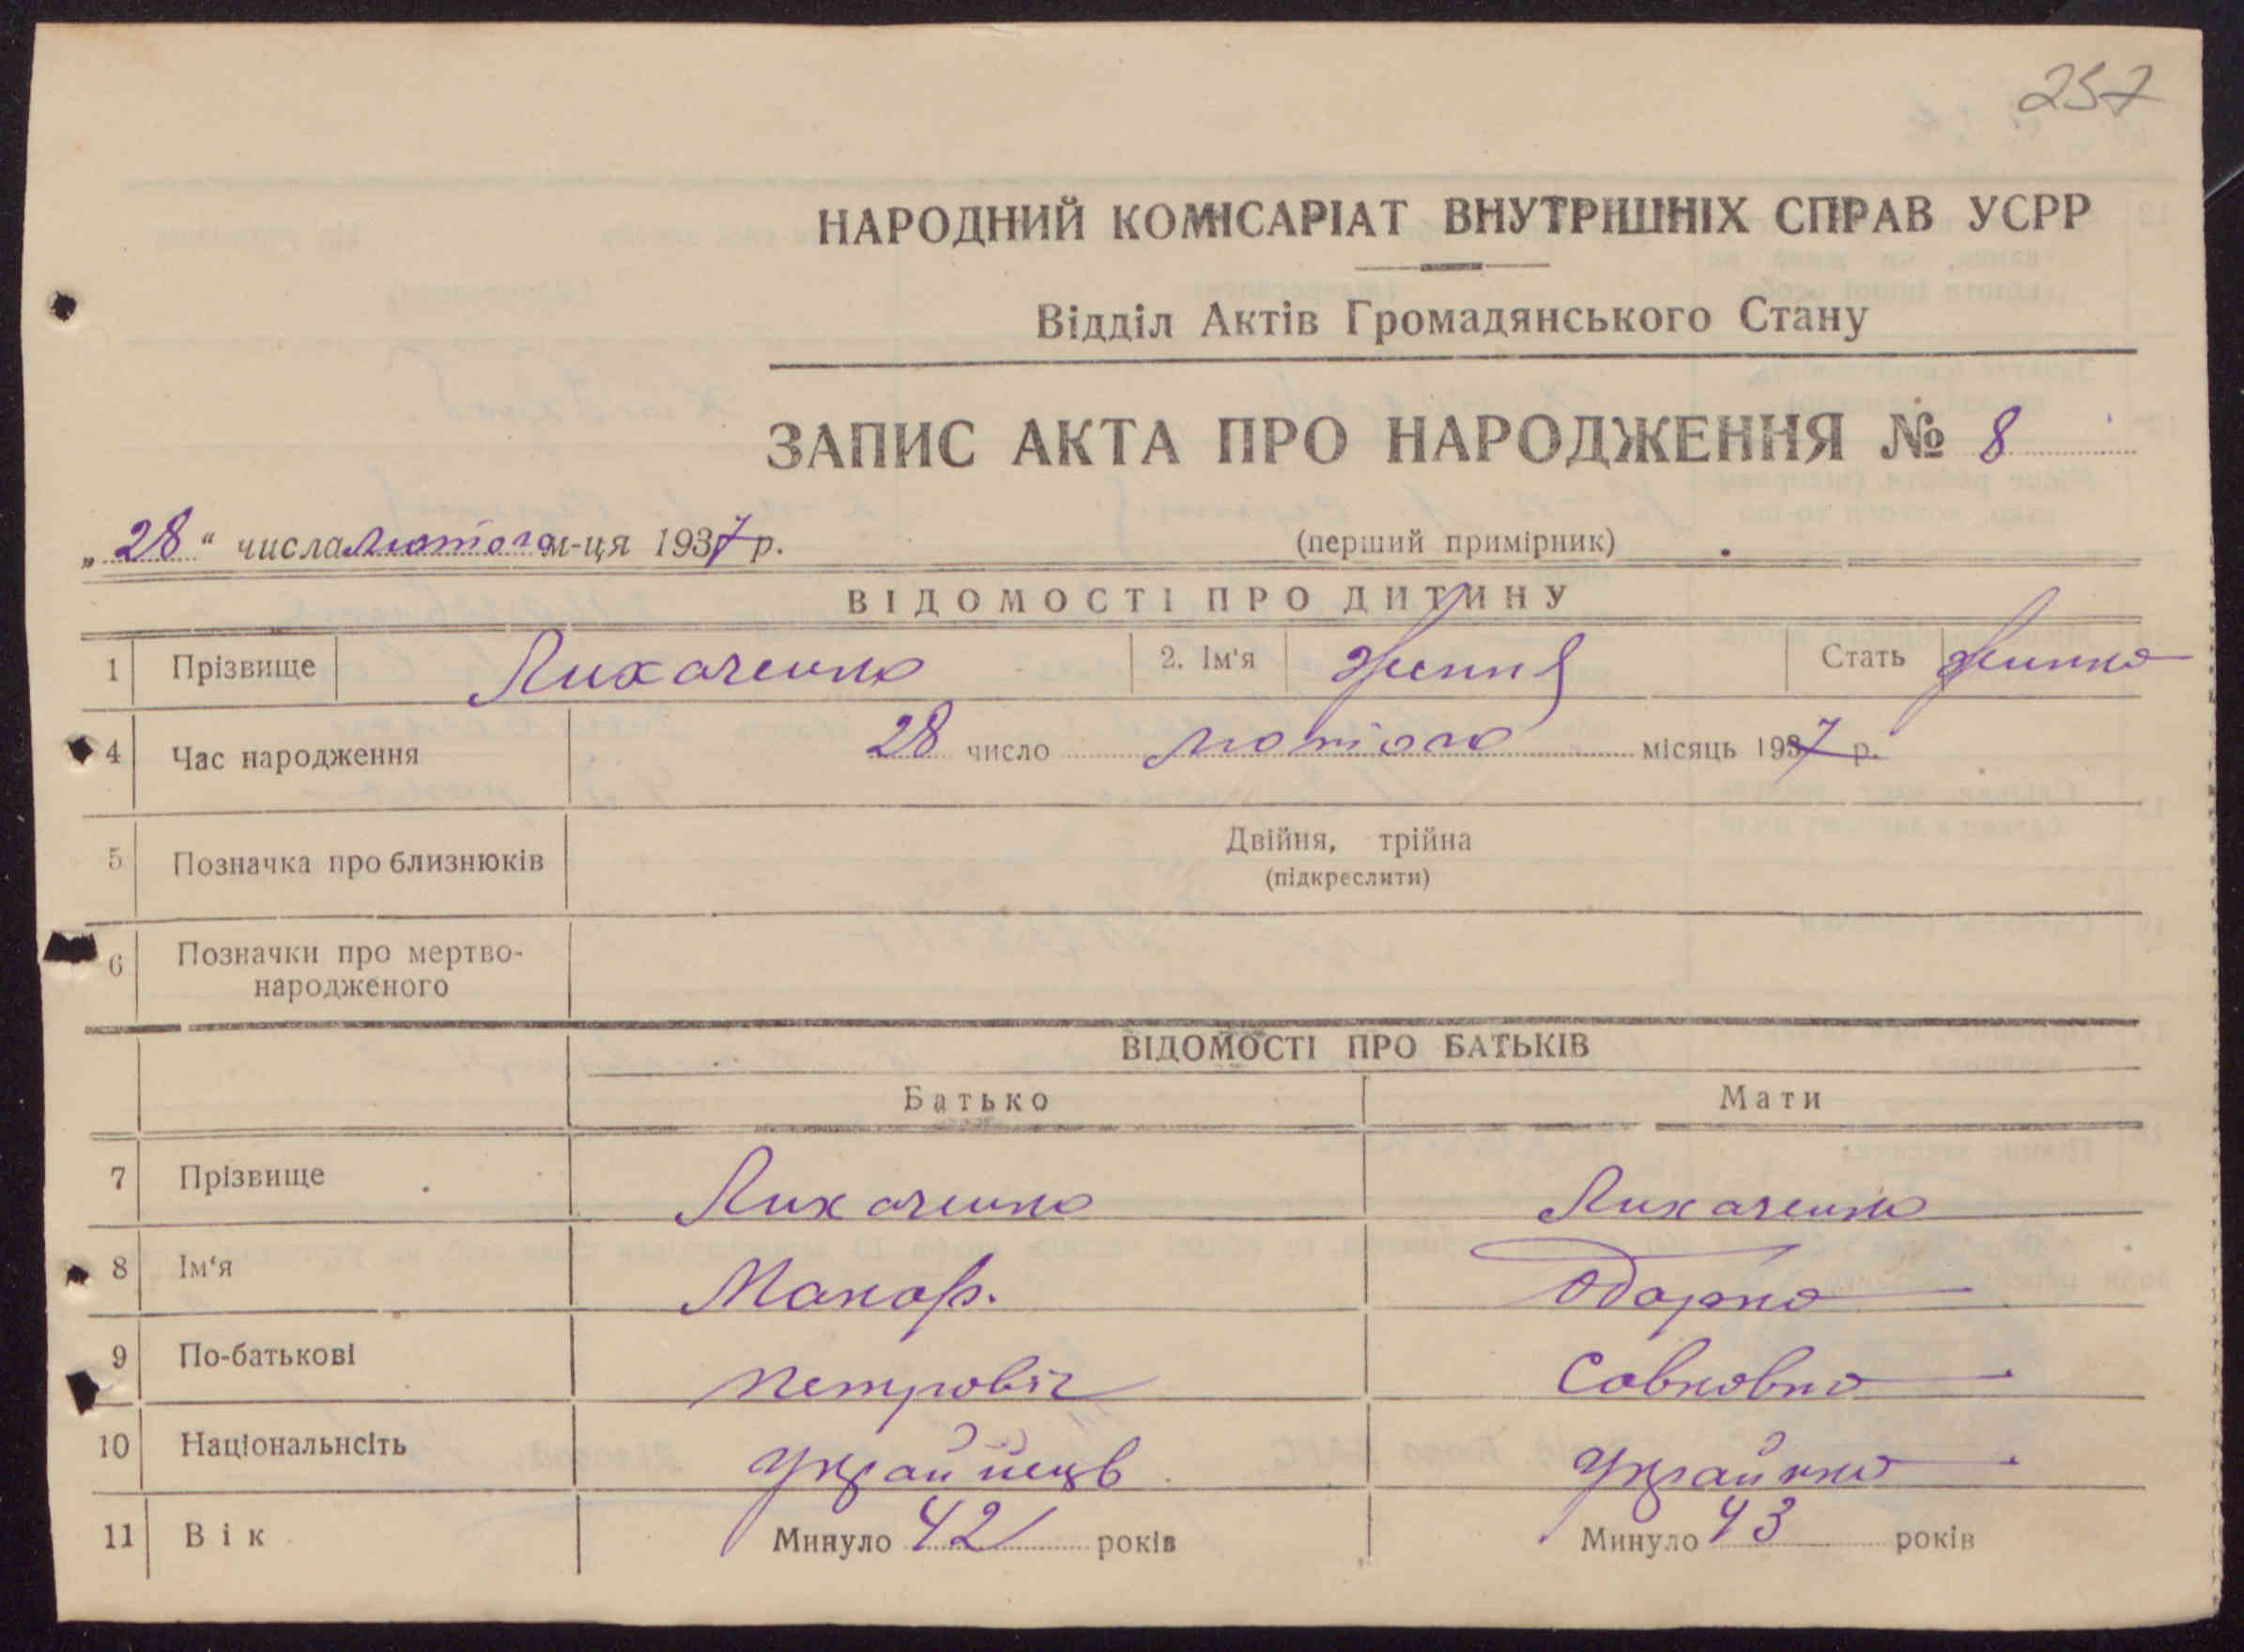 257
НАРОДНИЙ КОМІСАРІАТ ВНУТРІШНІХ СПРАВ УСРР
Відділ Актів Громадянського Стану
ЗАПИС АКТА ПРО НАРОДЖЕННЯ № 8
„28“ числа лютого м-ця 1937 р. (перший примірник)
ВІДОМОСТІ ПРО ДИТИНУ
1 Прізвище Лихаченко 2. Ім'я Ження Стать жинка
4 Час народження 28 число лютого місяць 1937 р.
5 Позначка про близнюків Двійня, трійня
(підкреслити)
6 Позначки про мертво-
народженого
ВІДОМОСТІ ПРО БАТЬКІВ
Батько Мати
7 Прізвище Лихаченко Лихаченко
8 Ім'я Макар. Одарка
9 По-батькові Петровіч Савковна
10 Національнсіть Українець Українка
11 Вік Минуло 42 років Минуло 43 років